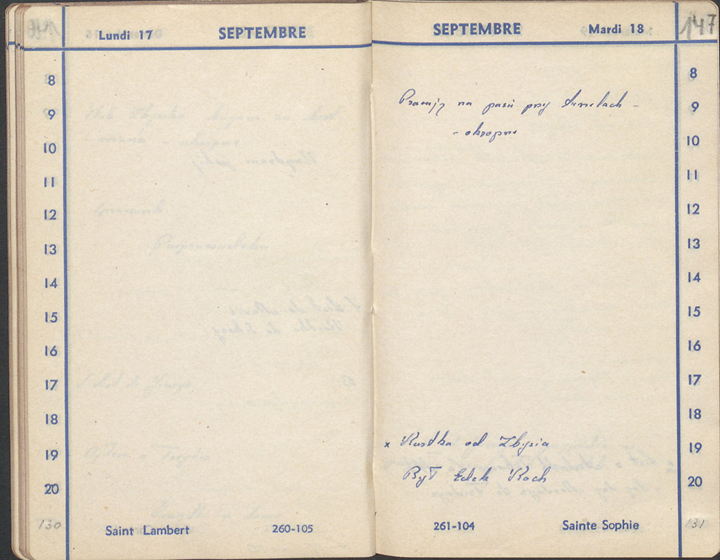 Lundi 17 SEPTEMBRE
8
9
10
11
12
13
14
15
16
17
18
19
20
130 Saint Lambert 260-105
SEPTEMBRE Mardi 18 147
8
9 Pracuję na parii przy
10 - okropne
11
12
13
14
15
16
17
18
19 x Kartka od Zbysia
20 Był Edek Koch
261-104 Sainte Sophie 131